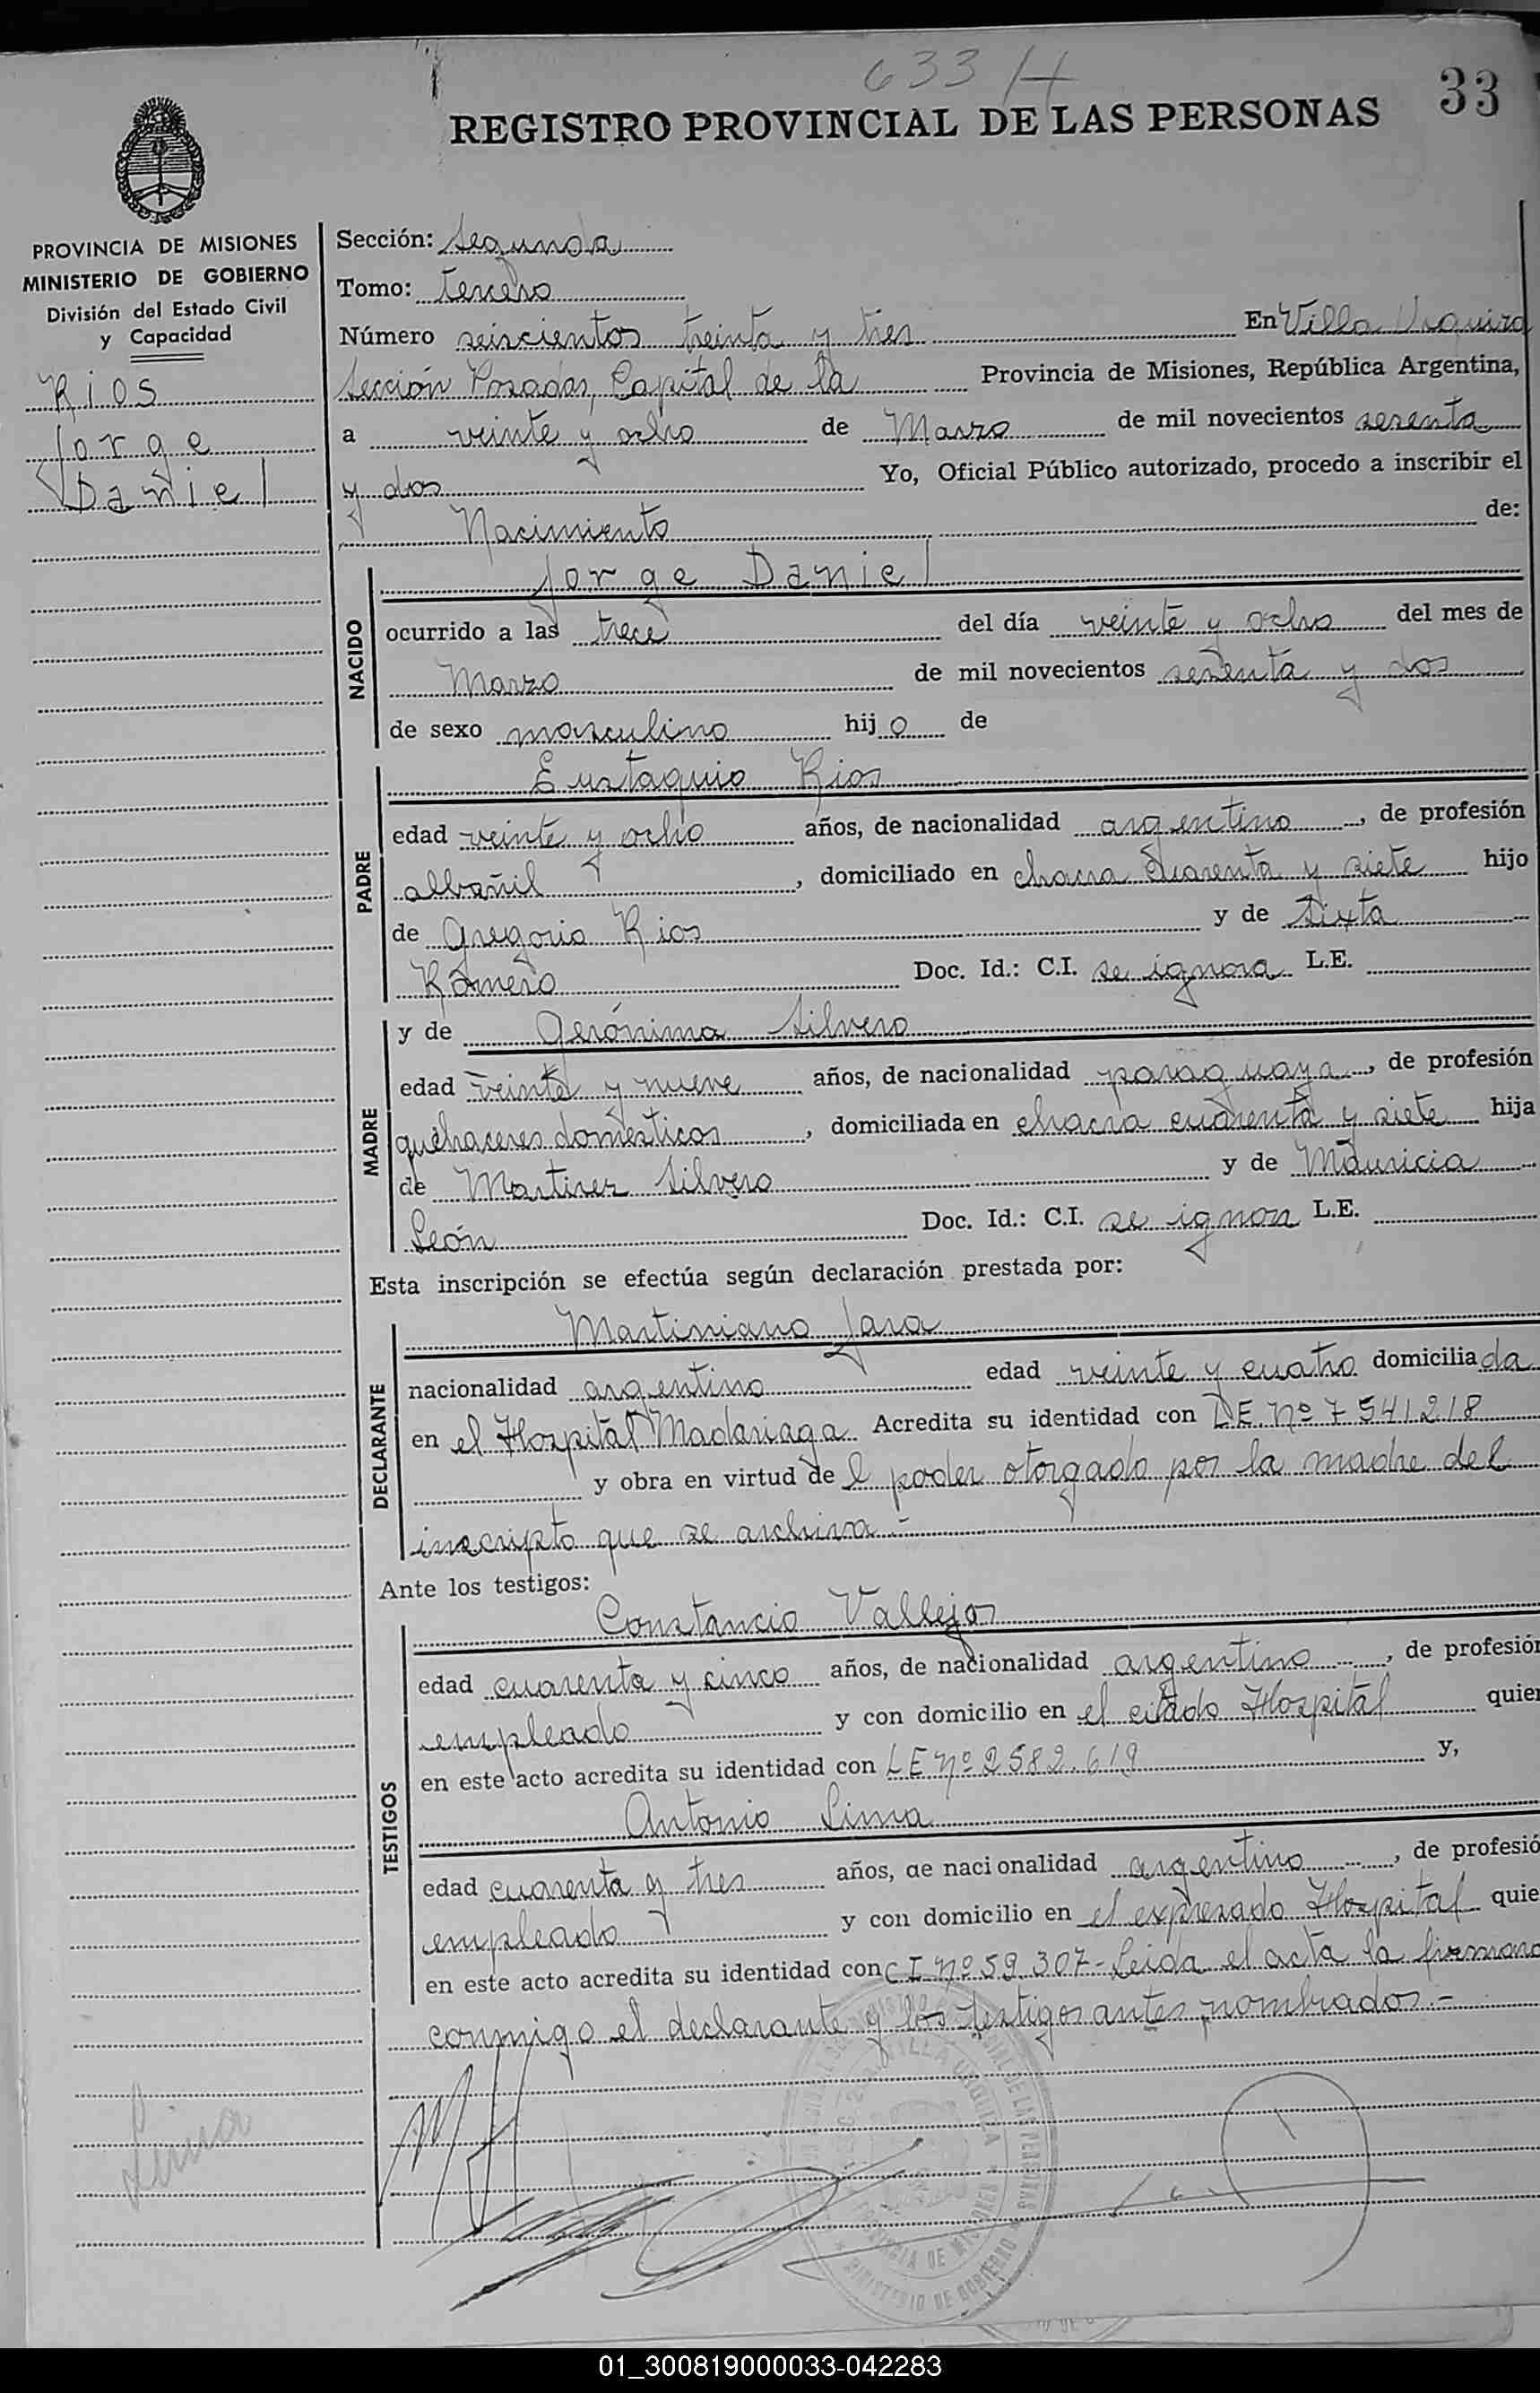 633 H
33
REGISTRO PROVINCIAL DE LAS PERSONAS
PROVINCIA DE MISIONES
MINISTERIO DE GOBIERNO
División del Estado Civil
y Capacidad
Rios
Jorge
Daniel
Sección: Segunda
Tomo: Tercero
Número seiscientos treinta y tres En Villa Urquiza
Sección Posadas, Capital de la Provincia de Misiones, República Argentina,
a veinte y ocho de Marzo de mil novecientos sesenta
y dos Yo, Oficial Público autorizado, procedo a inscribir el
Nacimiento de:
NACIDO
Jorge Daniel
ocurrido a las trece del día veinte y ocho del mes de
Marzo de mil novecientos sesenta y dos
de sexo masculino hijo de
PADRE
Eustaquio Rios
edad veinte y ocho años, de nacionalidad argentino, de profesión
albañil, domiciliado en chacra cuarenta y siete hijo
de Gregorio Rios y de Sixta
Romero Doc. Id.: C.I. se ignora L.E.
MADRE
y de Gerónima Silvero
edad veinte y nueve años, de nacionalidad paraguaya, de profesión
quehaceres domésticos, domiciliada en chacra cuarenta y siete hija
de Martires Silvero y de Mauricia
León Doc. Id.: C.I. se ignora L.E.
Esta inscripción se efectúa según declaración prestada por:
DECLARANTE
Martiniano Jara
nacionalidad argentino edad veinte y cuatro domiciliada
en el Hospital Madariaga Acredita su identidad con L.E. Nº 7541218
y obra en virtud del poder otorgado por la madre del
inscripto que se archiva.-
Ante los testigos:
TESTIGOS
Constancio Vallejos
edad cuarenta y cinco años, de nacionalidad argentino, de profesión
empleado y con domicilio en el citado Hospital quien
en este acto acredita su identidad con L E Nº 2582.619 y,
Antonio Lima
edad cuarenta y tres años, de nacionalidad argentino, de profesió
empleado y con domicilio en el expresado Hospital quie
en este acto acredita su identidad con C I Nº 59.307- Leida el acta la firmaron
conmigo el declarante y los testigos antes nombrados.-
Lima
VILLA URQUIZA
PROVINCIA DE MISIONES
MINISTERIO DE GOBIERNO
01_300819000033-042283